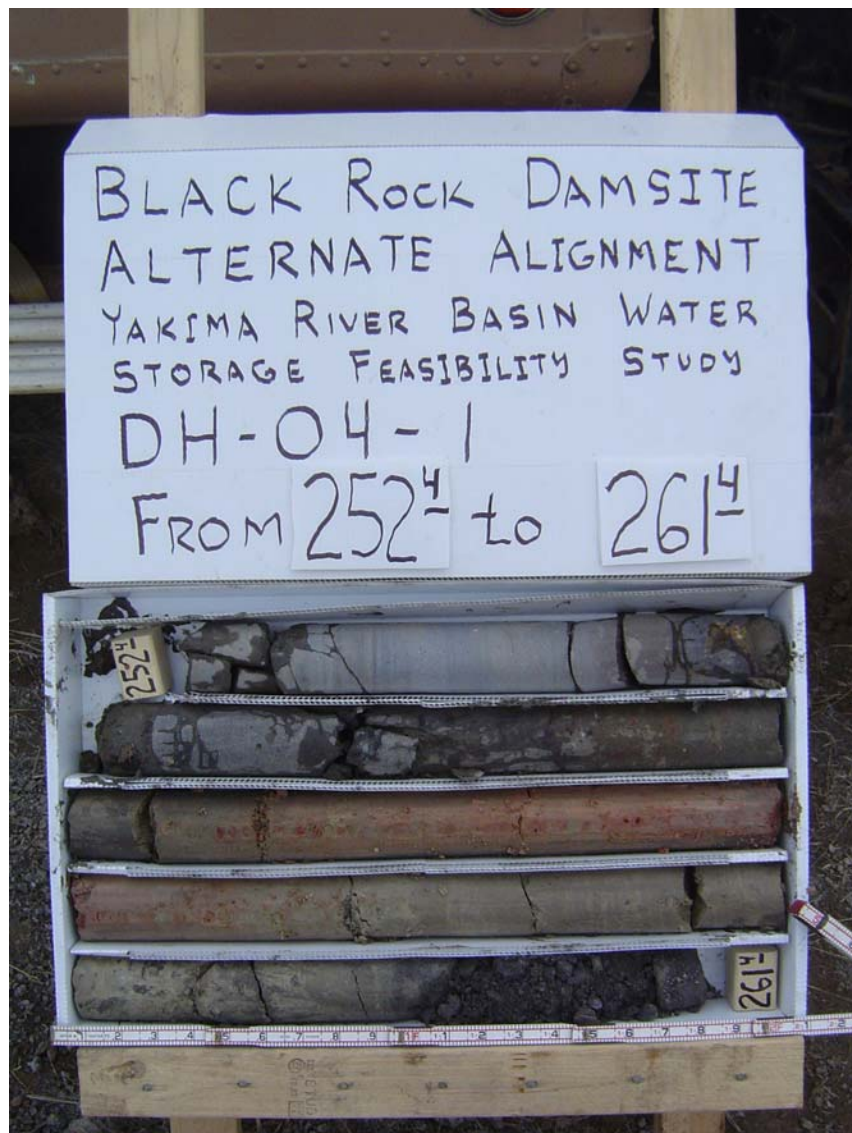 BLACK ROCK DAMSITE
ALTERNATE ALIGNMENT
YAKIMA RIVER BASIN WATER
STORAGE FEASIBILITY STUDY
DH-04-1
FROM 252⁴ to 261⁴
252⁴
261⁴
2 3 4 5 6 7 8 9 1F 1 2 3 4 5 6 7 8 9 1 2